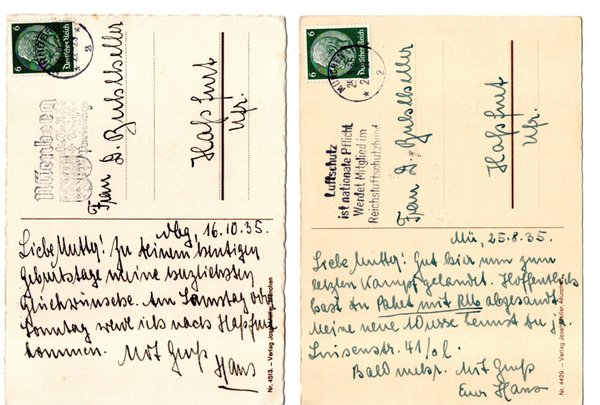 6
Deutsches Reich
Nürnberg
Frau
Haßfurt
Ufr.
Nbg, 16.10.35.
Liebe Mutter! Zu Deinem heutigen
Geburtstage meine herzlichsten
Glückwünsche. Am Samstag oder
Sonntag werde ich nach Haßfurt
kommen. Mit Gruß
Hans
Nr. 4513. – Verlag München
6
Deutsches Reich
München
Luftschutz
ist nationale Pflicht
Werdet Mitglied im
Reichsluftschutzbund
Frau
Haßfurt
Ufr.
Mü, 25.8.35.
Liebe Mutter! Gut bin zum
letzten Kampf gelandet. Hoffentlich
hast du Paket mit abgesandt.
Meine neue kennst du ja.
Luisenstr. 41/
Bald mehr. Mit Gruß
Euer Hans
Nr. 4429. – Verlag München